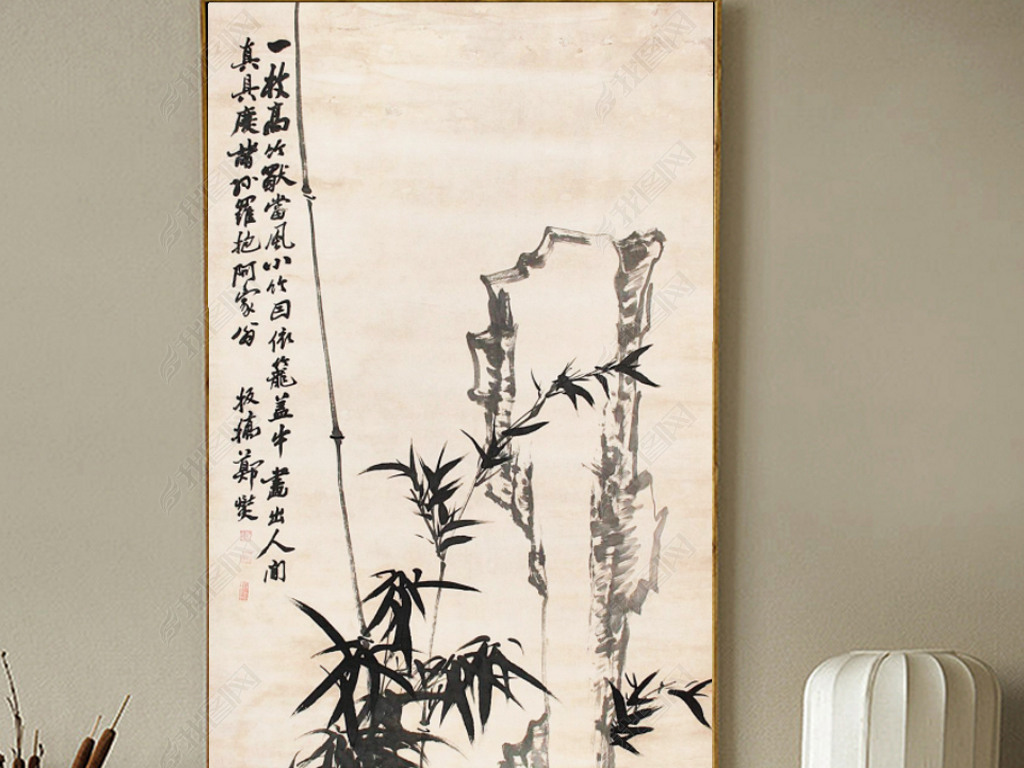 一枝高竹獨當風小竹因依籠盖中畫出人間
真具慶諸孫羅抱阿家翁 板橋鄭燮